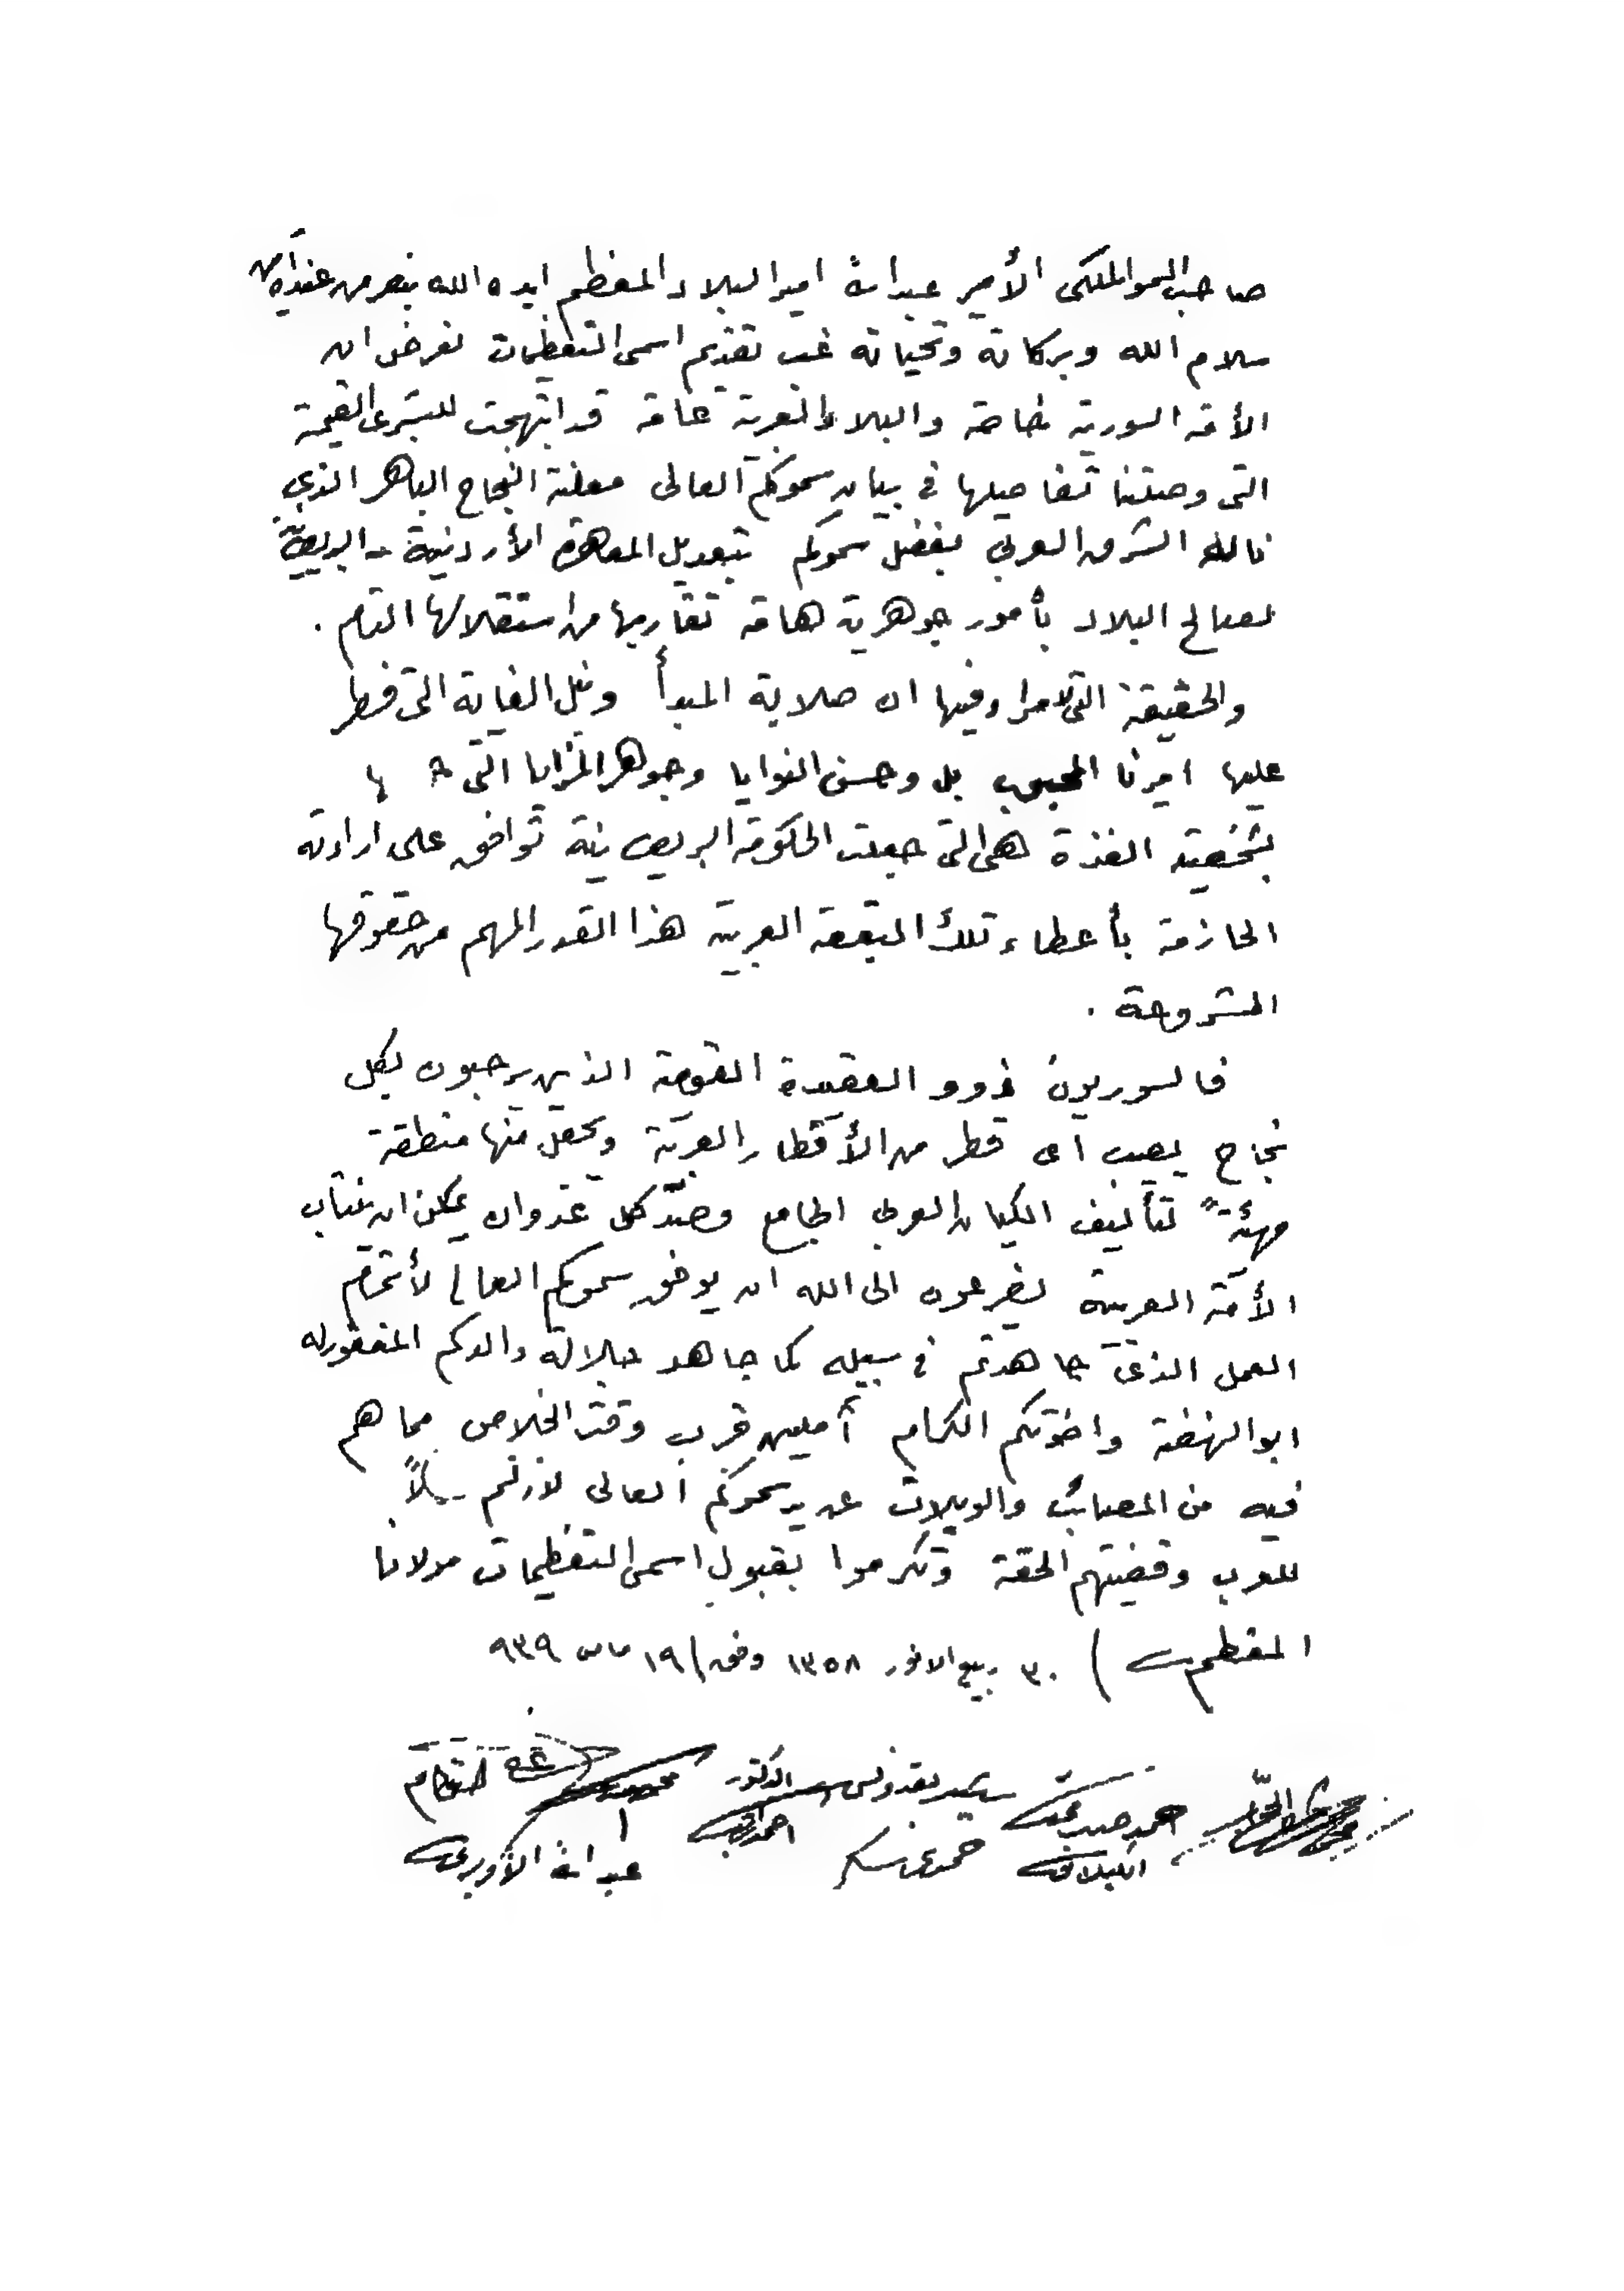 صاحب السمو الملكي الأمير عبدالله امير البلاد المعظم ايده الله بنصر من عنده آمين
سلام الله وبركاته وتحياته غب تقديم اسمى التعظيمات نعرض ان
الأمة السورية خاصة والبلاد العربية عامة قد ابتهجت للبشرى القيمة
التى وصلتنا تفاصيلها في بيان سموكم العالى معلنة النجاح الباهر الذي
ناله الشرق العربي بفضل سموكم بتعديل المعاهدة الأردنية - البريطانية
لصالح البلاد بأمور جوهرية هامة تقاربها من استقلالها التام .
والحقيقة التى لا مراء فيها ان صلابة المبدأ ونبل الغاية التى فطر
عليها اميرنا المحبوب بل وحسن النوايا وجوهر المزايا التى
بشخصيته الفذة هي التى جعلت الحكومة البريطانية توافق على ارادته
الحازمة بأعطاء تلك البقعة العربية هذا القدر المهم من حقوقها
المشروعة .
فالسوريون ذوو العقيدة القومية الذين يرحبون بكل
نجاح يصيب اى قطر من الأقطار العربية ويجعل منها منطقة
مهيئة لتأليف الكيان العربي الجامع وصد كل عدوان يمكن ان ينتاب
الأمة العربية يضرعون الى الله ان يوفق سموكم العالي لأتمام
العمل الذى جاهدتم في سبيله كما جاهد جلالة والدكم المغفور له
ابو النهضة واخوتكم الكرام آملين قرب وقت الخلاص مما هم
فيه من المصائب والويلات عن يد سموكم العالى لازلتم
للعرب وقضيتهم الحقة وتكرموا بقبول اسمى التعظيمات مولانا
المعظم ) ٣٠ ربيع الانور ١٣٥٨ وفق ١٩ مايس ٩٣٩
الدكتور
احمد
الكيلاني حمدى سكر
عبدالله الأوبري